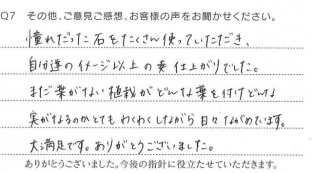 Q7 その他、ご意見ご感想、お客様の声をお聞かせください。
憧れだった石をたくさん使っていただき、
自分達のイメージ以上の 仕上がりでした。
まだ葉がない植栽がどんな葉を付けどんな
実がなるのかとてもわくわくしながら日々ながめています。
大満足です。ありがとうございました。
ありがとうございました。今後の指針に役立たせていただきます。